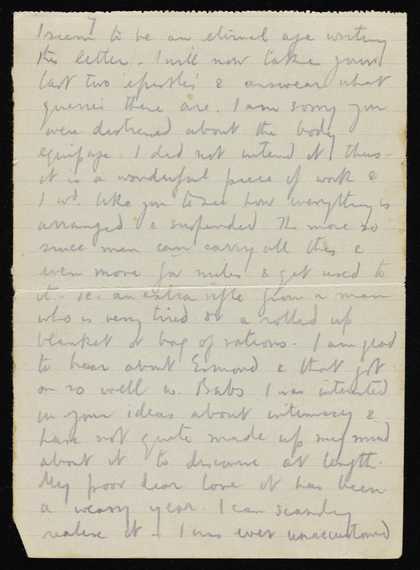 7
I seem to be an eternal age writing
this letter. I will now take your
last two 'epistles' & answear what
queries there are. I am sorry you
were distressed about the body
equipage. I did not intend it thus.
it is a wonderful piece of work &
I wd. like you to see how everything is
arranged & suspended. The more so
since men can carry all this &
even more for miles & get used to
it. ie. an extra rifle from a man
who is very tired or a rolled up
blanket or bag of rations. I am glad
to hear about Esmond & that got
on so well w. Babs. I was interested
in your ideas about intimacy &
have not quite made up my mind
about it to discourse at length.
My poor dear love it has been
a weary year. I can scarcely
realise it. I was ever unaccustomed